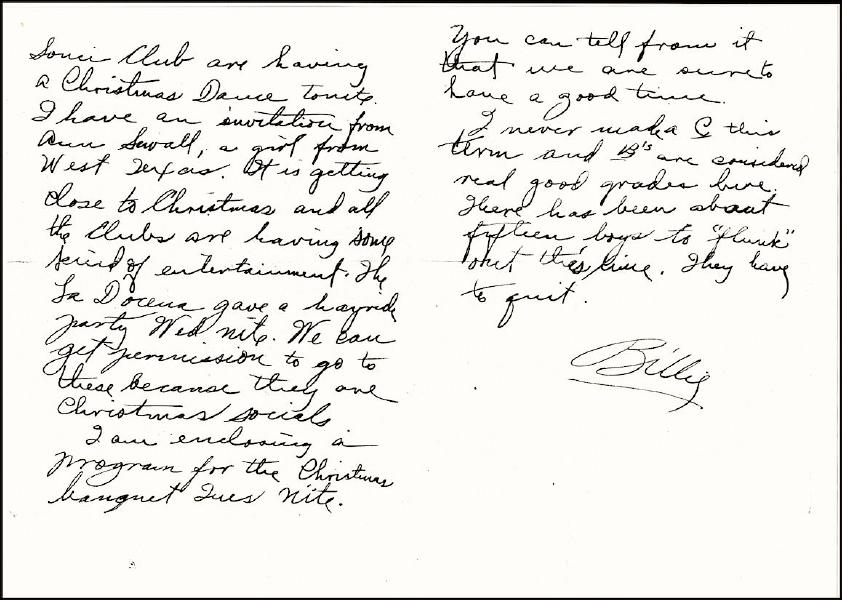 Souci Club are having
a Christmas Dance tonite.
I have an invitation from
Ann Sewall, a girl from
West Texas. It is getting
close to Christmas and all
the Clubs are having some
kind of entertainment. The
La Docena gave a hayride
party Wed nite. We can
get permission to go to
these because they are
Christmas socials
I am enclosing a
program for the Christmas
banquet Tues nite.
You can tell from it
that we are sure to
have a good time.
I never make a C this
term and B's are considered
real good grades here.
There has been about
fifteen boys to "flunk"
out this time. They have
to quit.
Billie